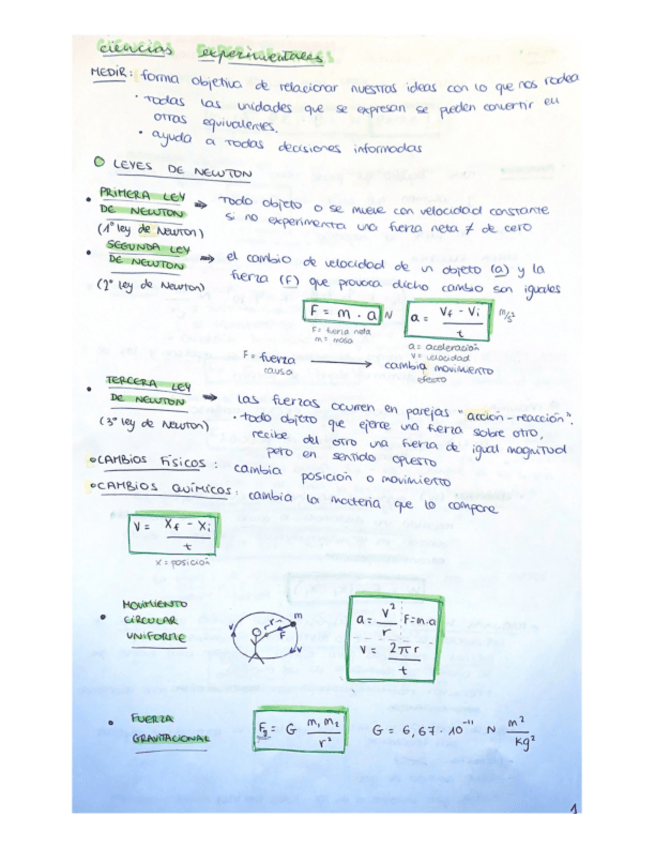 ciencias experimentales
MEDIR: forma objetiva de relacionar nuestras ideas con lo que nos rodea
· Todas las unidades que se expresan se pueden convertir en
otras equivalentes.
· ayuda a todas decisiones informadas
LEYES DE NEWTON
• PRIMERA LEY DE NEWTON ⇒ Todo objeto o se mueve con velocidad constante
(1ª ley de Newton) si no experimenta una fuerza neta ≠ de cero
• SEGUNDA LEY DE NEWTON ⇒ el cambio de velocidad de un objeto (a) y la
(2ª ley de Newton) fuerza (F) que provoca dicho cambio son iguales
F = m · a N a = Vf - Vi / t m/s²
F = fuerza neta
m = masa
a = aceleración
v = velocidad
F = fuerza → cambia movimiento
causa efecto
• TERCERA LEY DE NEWTON ⇒ las fuerzas ocurren en parejas "acción-reacción".
(3ª ley de Newton) · todo objeto que ejerce una fuerza sobre otro,
recibe del otro una fuerza de igual magnitud
pero en sentido opuesto
• CAMBIOS FÍSICOS: cambia posición o movimiento
• CAMBIOS QUÍMICOS: cambia la materia que lo compone
V = Xf - Xi / t
x = posición
• MOVIMIENTO
CIRCULAR
UNIFORME
v r m F v
a = v² / r F=m·a
v = 2πr / t
• FUERZA
GRAVITACIONAL
Fg = G m₁ m₂ / r² G = 6,67 · 10⁻¹¹ N m² / kg²
1